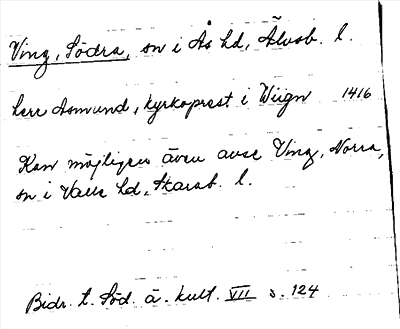 Ving, Södra, sn i Ås hd, Älvsb. l.
herr Asmund, kyrkoprest i Wiign 1416
Kan möjligen även avse Ving, Norra,
sn i Valle hd, Skarab. l.
Bidr. t. Söd. ä. kult. VII s. 124